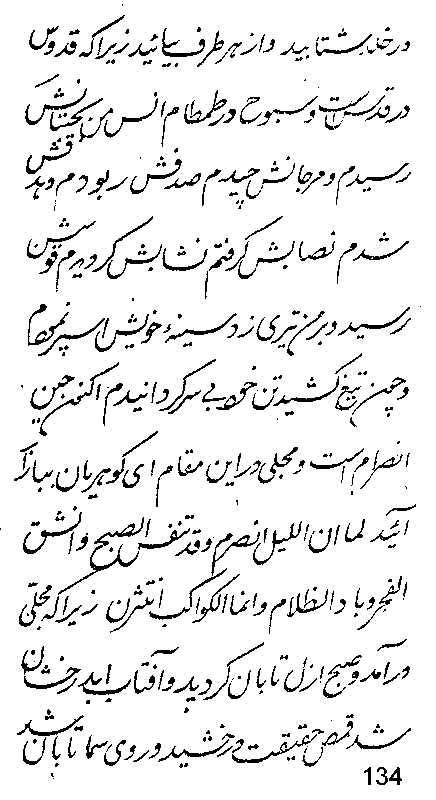 در خدا بشتابید و از هر طرف بیائید زیرا که قدوس
در قدس است و سبوح در طمطام انس من بحیتانش
رسیدم و مرجانش چیدم صدفش ربودم و هدفش
شدم نصابش گرفتم نشابش گردیدم قوسش
رسید و بر من تیری زد سینهٔ خویش اسپر نمودم
و چون تیغ کشید تن خود بی سر گردانیدم اکنون حین
انصرام است و مجلی در این مقام ای گوهریان ببازار
آئید لما ان اللیل انصرم و قد تنفس الصبح و انشق
الفجر و باد الظلام و انما الکواکب انتثرن زیرا که مجلی
درآمد و صبح ازل تابان گردید و آفتاب ابد رخشان
شد قمص حقیقت درخشید و روی سما تابان شد
134